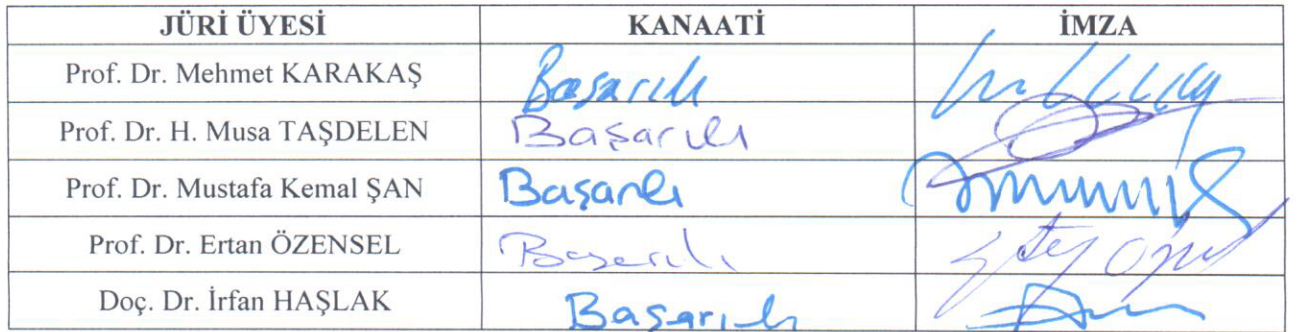 JÜRİ ÜYESİ KANAATİ İMZA
Prof. Dr. Mehmet KARAKAŞ Başarılı
Prof. Dr. H. Musa TAŞDELEN Başarılı
Prof. Dr. Mustafa Kemal ŞAN Başarılı
Prof. Dr. Ertan ÖZENSEL Başarılı
Doç. Dr. İrfan HAŞLAK Başarılı